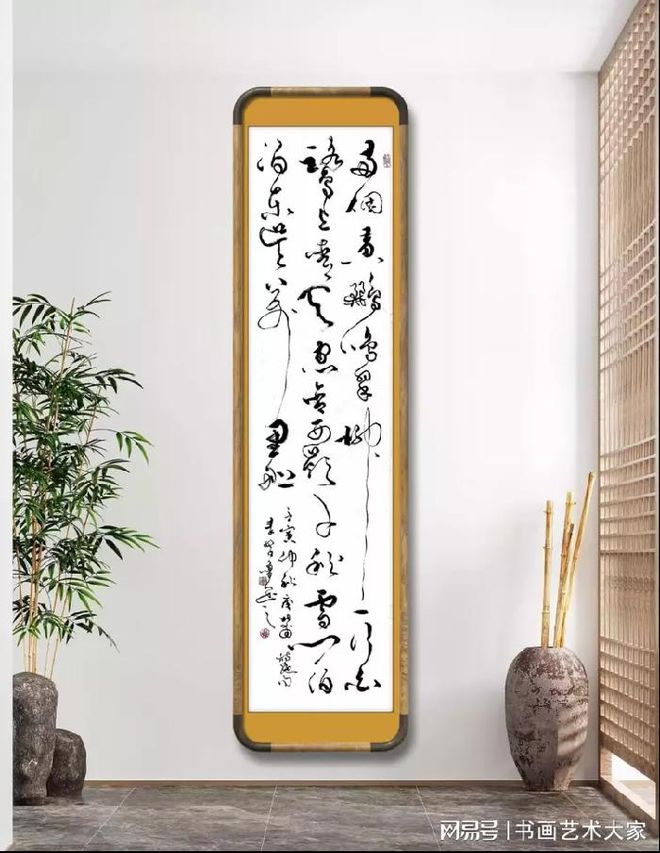 两個黄鸝鳴翠柳一行白
鷺上青天窓含西嶺千秋雪门泊
泊东吴万里船
壬寅仲秋
网易号 | 书画艺术大家